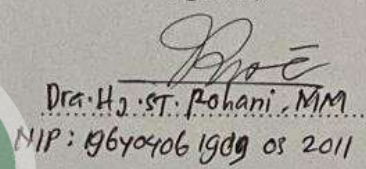 Dra. Hj. ST. Rohani, MM
NIP : 19640406 1989 03 2011